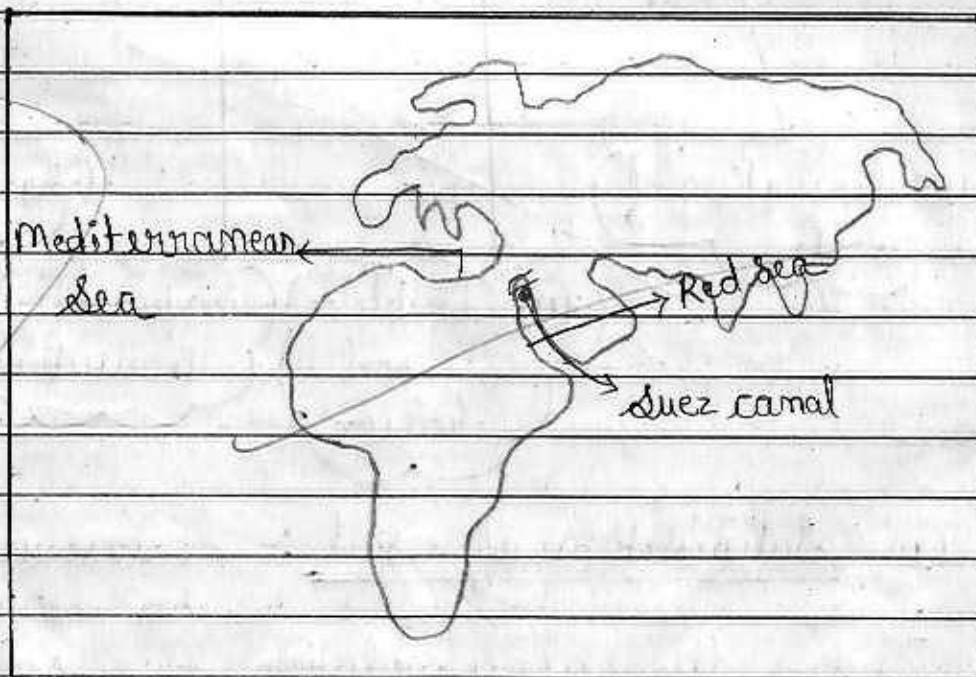 Mediterranean
Sea
Red Sea
Suez canal